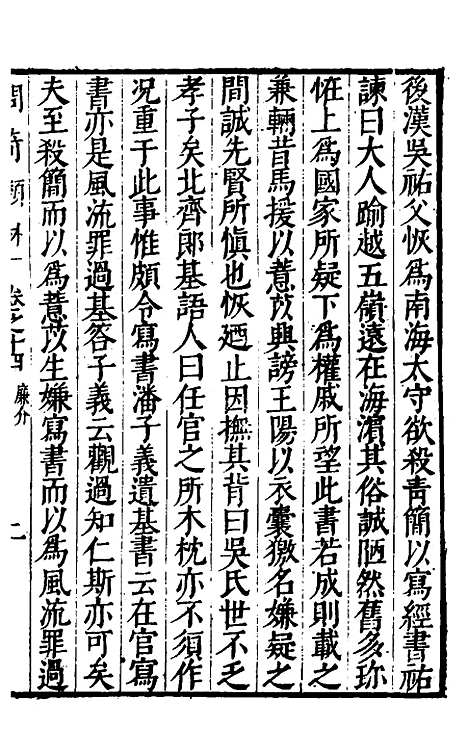 後漢吳祐父恢爲南海太守欲殺靑簡以寫經書祐
諫曰大人踰越五嶺遠在海濵其俗誠陋然舊多珎
恠上爲國家所疑下爲權戚所望此書若成則載之
兼輛昔馬援以薏苡興謗王陽以衣囊獥名嫌疑之
間誠先賢所愼也恢廼止因撫其背曰吳氏世不乏
孝子矣北齊郞基語人曰任官之所木枕亦不須作
况重于此事惟頗令寫書潘子義遺基書云在官寫
書亦是風流罪過基答子義云觀過知仁斯亦可矣
夫至殺簡而以爲薏苡生嫌寫書而以爲風流罪過
卷之十四 廉介 二